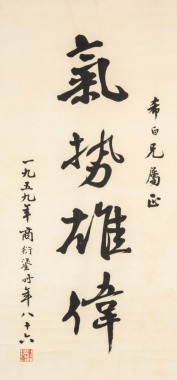 希白兄屬正
氣勢雄偉
一九五九年商衍鎏時年八十六